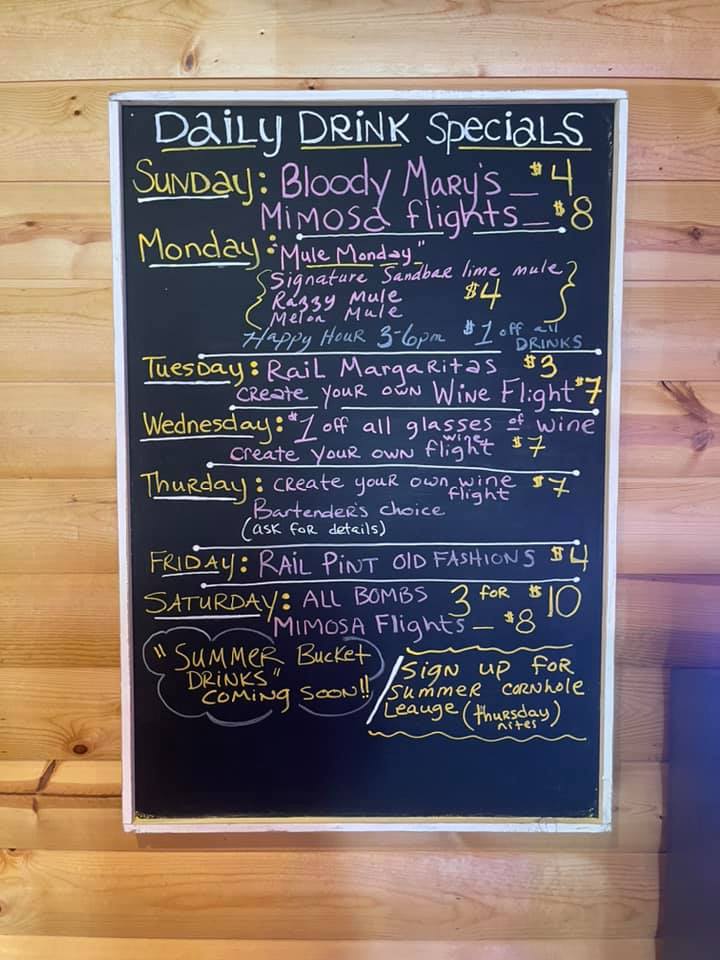 Daily Drink Specials
Sunday: Bloody Mary's _ $4
Mimosa flights _ $8
Monday: "Mule Monday"
{Signature Sandbar lime mule}
Razzy Mule $4
Melon Mule
Happy Hour 3-6pm $1 off all DRINKS
Tuesday: Rail Margaritas $3
create your own Wine Flight $7
Wednesday: $1 off all glasses of wine
create your own wine flight $7
Thurday: create your own wine flight $7
Bartender's choice
(ask for details)
Friday: Rail Pint Old Fashions $4
Saturday: All Bombs 3 for $10
Mimosa Flights _ $8
"Summer Bucket
Drinks"
coming soon!!
Sign up for
Summer cornhole
Leauge (thursday nites)